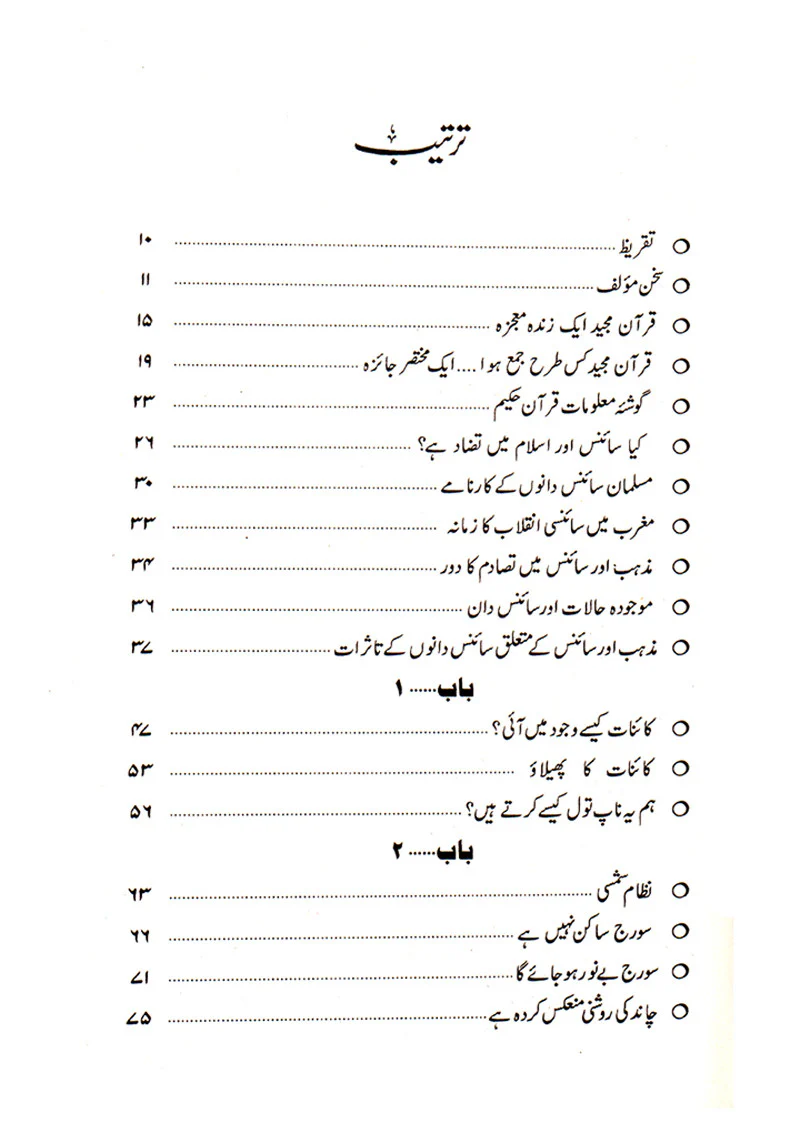 ترتیب
○ تقریظ ........ ۱۰
○ سخن مؤلف ........ ۱۱
○ قرآن مجید ایک زندہ معجزہ ........ ۱۵
○ قرآن مجید کس طرح جمع ہوا .... ایک مختصر جائزہ ........ ۱۹
○ گوشئہ معلومات قرآن حکیم ........ ۲۳
○ کیا سائنس اور اسلام میں تضاد ہے؟ ........ ۲۶
○ مسلمان سائنس دانوں کے کارنامے ........ ۳۰
○ مغرب میں سائنسی انقلاب کا زمانہ ........ ۳۳
○ مذہب اور سائنس میں تصادم کا دور ........ ۳۴
○ موجودہ حالات اور سائنس دان ........ ۳۶
○ مذہب اور سائنس کے متعلق سائنس دانوں کے تاثرات ........ ۳۷
باب ...... ۱
○ کائنات کیسے وجود میں آئی؟ ........ ۴۷
○ کائنات کا پھیلاؤ ........ ۵۳
○ ہم یہ ناپ تول کیسے کرتے ہیں؟ ........ ۵۶
باب ...... ۲
○ نظام شمسی ........ ۶۳
○ سورج ساکن نہیں ہے ........ ۶۶
○ سورج بے نور ہو جائے گا ........ ۷۱
○ چاند کی روشنی منعکس کردہ ہے ........ ۷۵